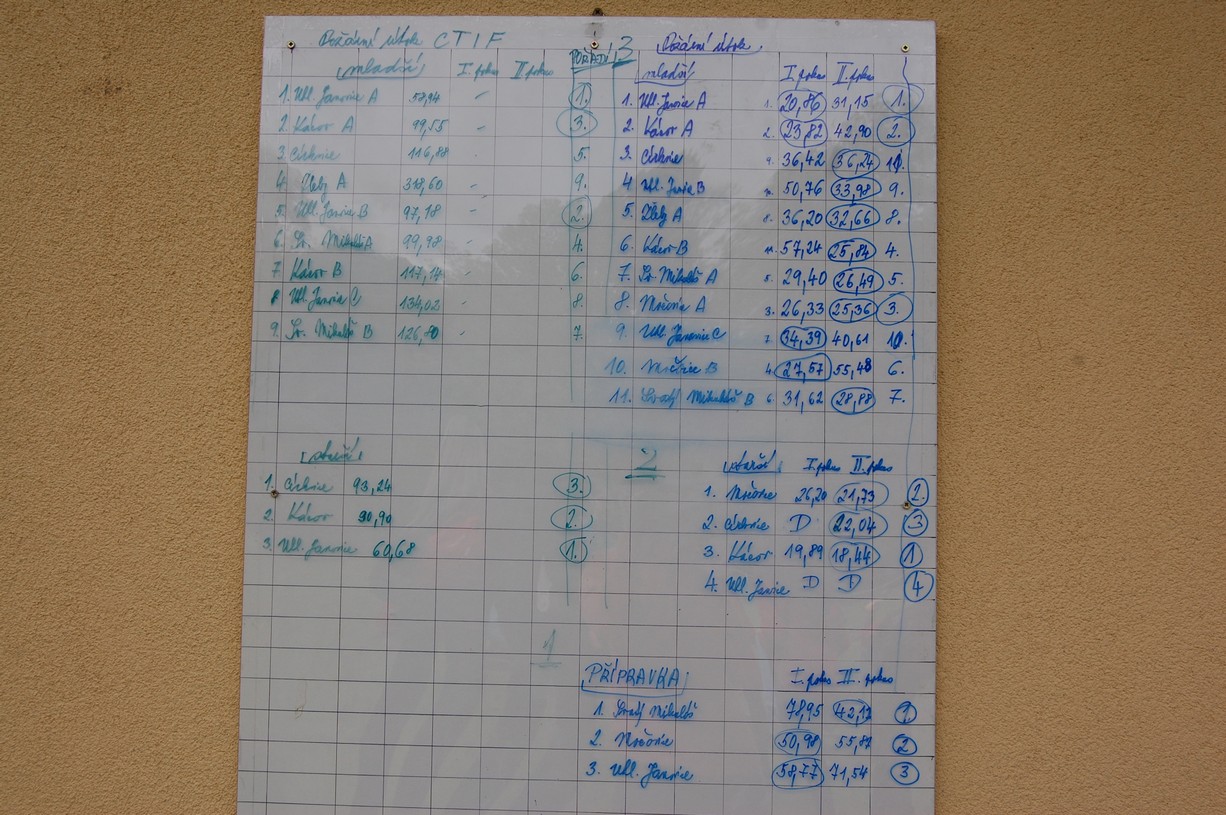 Požární útok CTIF
mladší I. pokus II. pokus POŘADÍ
1. Uhl. Janovice A 58,94 - 1.
2. Kácov A 99,55 - 3.
3. Církvice 116,88 5.
4. Zbizuby A 318,60 - 9.
5. Uhl. Janovice B 97,18 - 2.
6. Sv. Mikuláš A 99,98 - 4.
7. Kácov B 117,14 - 6.
8 Uhl. Janovice C 134,02 - 8.
9. Sv. Mikuláš B 126,80 - 7.
3
Požární útok
mladší I. pokus II. pokus
1. Uhl. Janovice A 1. 20,86 31,15 1.
2. Kácov A 2. 23,82 42,90 2.
3. Církvice 9. 36,42 36,24 11.
4 Uhl. Janovice B 50,76 33,98 9.
5. A 8. 36,20 32,66 8.
6. Kácov B 11. 57,24 25,84 4.
7. Sv. Mikuláš A 5. 29,40 26,49 5.
8. Močovice A 3. 26,33 25,36 3.
9. Uhl. Janovice C 7. 34,39 40,61 10.
10. Močovice B 4. 27,57 55,48 6.
11. Svatý Mikuláš B 6. 31,62 28,88 7.
starší
1. Církvice 93,24 3.
2. Kácov 90,90 2.
3. Uhl. Janovice 60,68 1.
2
starší I. pokus II. pokus
1. Močovice 26,20 21,73 2.
2. Církvice D 22,04 3
3. Kácov 19,89 18,44 1
4. Uhl. Janovice D D 4
1
PŘÍPRAVKA I. pokus II. pokus
1. Svatý Mikuláš 78,95 42,17 1
2. Močovice 50,98 55,87 2
3. Uhl. Janovice 58,77 71,54 3